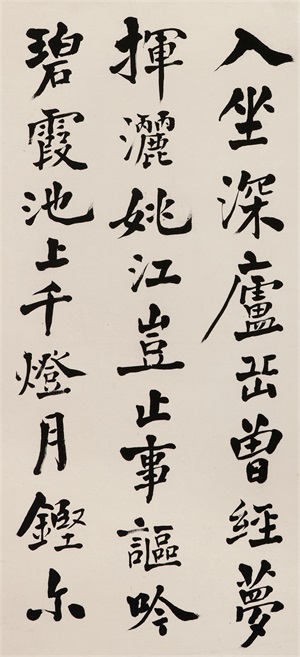 入坐深廬曾經夢
揮灑姚江豈止事謳吟
碧霞池上千燈月鏗尔